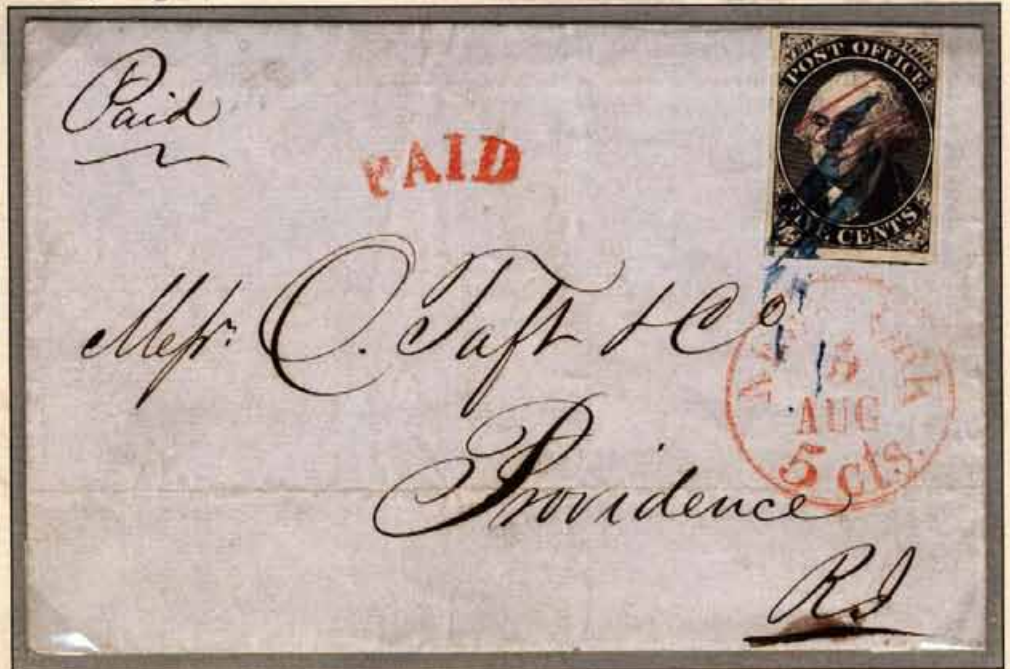 Paid
PAID
POST OFFICE
FIVE CENTS
Messr. O. Taft & Co
NEW YORK
5
AUG
5 cts.
Providence
R I